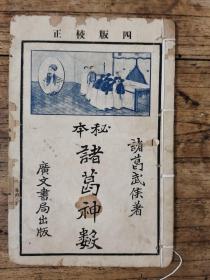 四版校正
諸葛武侯著
秘本
諸葛神數
廣文書局出版